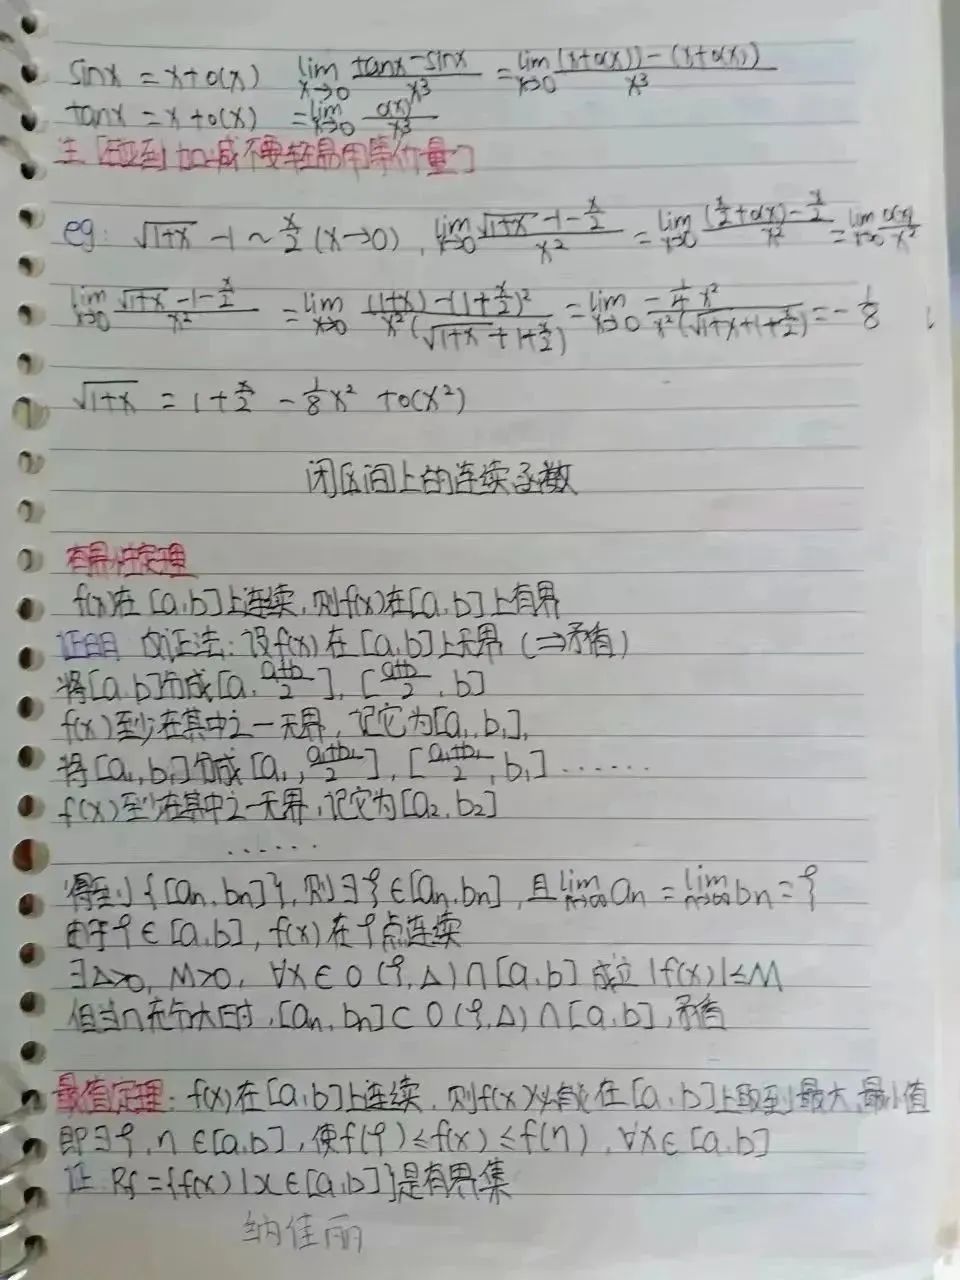 sinx = x+o(x) lim x→0 (tanx-sinx)/x³ = lim x→0 ((x+o(x))-(x+o(x)))/x³
tanx = x+o(x) = lim x→0 o(x)/x³
注[碰到加减不要轻易用等价量]
eg: √(1+x) -1 ~ x/2 (x→0), lim x→0 (√(1+x) -1- x/2)/x² = lim x→0 ((x/2+o(x))- x/2)/x² = lim x→0 o(x)/x²
lim x→0 (√(1+x) -1- x/2)/x² = lim x→0 ((1+x)-(1+x/2)²)/(x²(√(1+x)+1+x/2)) = lim x→0 (-1/4 x²)/(x²(√(1+x)+1+x/2)) = -1/8
√(1+x) = 1+x/2 - 1/8 x² +o(x²)
闭区间上的连续函数
有界性定理
f(x)在[a,b]上连续,则f(x)在[a,b]上有界
证明 反证法:设f(x)在[a,b]上无界(⇒矛盾)
将[a,b]分成[a, (a+b)/2], [(a+b)/2, b]
f(x)至少在其中之一无界,记它为[a₁,b₁],
将[a₁,b₁]分成[a₁, (a₁+b₁)/2], [(a₁+b₁)/2, b₁]......
f(x)至少在其中之一无界,记它为[a₂,b₂]
......
得到{[an,bn]},则∃ξ∈[an,bn],且lim n→∞ an = lim n→∞ bn = ξ
由于ξ∈[a,b], f(x)在ξ点连续
∃Δ>0, M>0, ∀x∈O(ξ,Δ)∩[a,b] 成立|f(x)|≤M
但当n充分大时,[an,bn]⊂O(ξ,Δ)∩[a,b],矛盾
最值定理:f(x)在[a,b]上连续,则f(x)必能在[a,b]上取到最大,最小值
即∃ξ,η∈[a,b],使f(ξ)≤f(x)≤f(η),∀x∈[a,b]
证 Rf={f(x)|x∈[a,b]}是有界集
纳佳丽